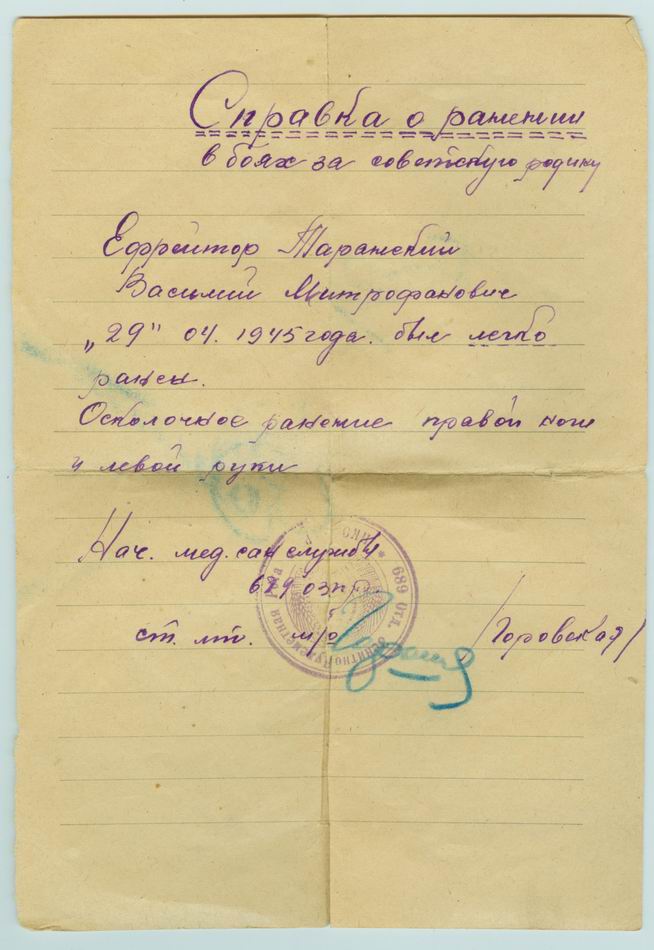 Справка о ранении
в боях за советскую родину
Ефрейтор Таранский
Василий Митрофанович
„29" 04. 1945 года. был легко
ранен.
Осколочное ранение правой ноги
и левой руки
Нач. мед. сан службы
689 озпр
ст. лт. м/с /Горовская/
689 отд. зенитнопулеметная рота